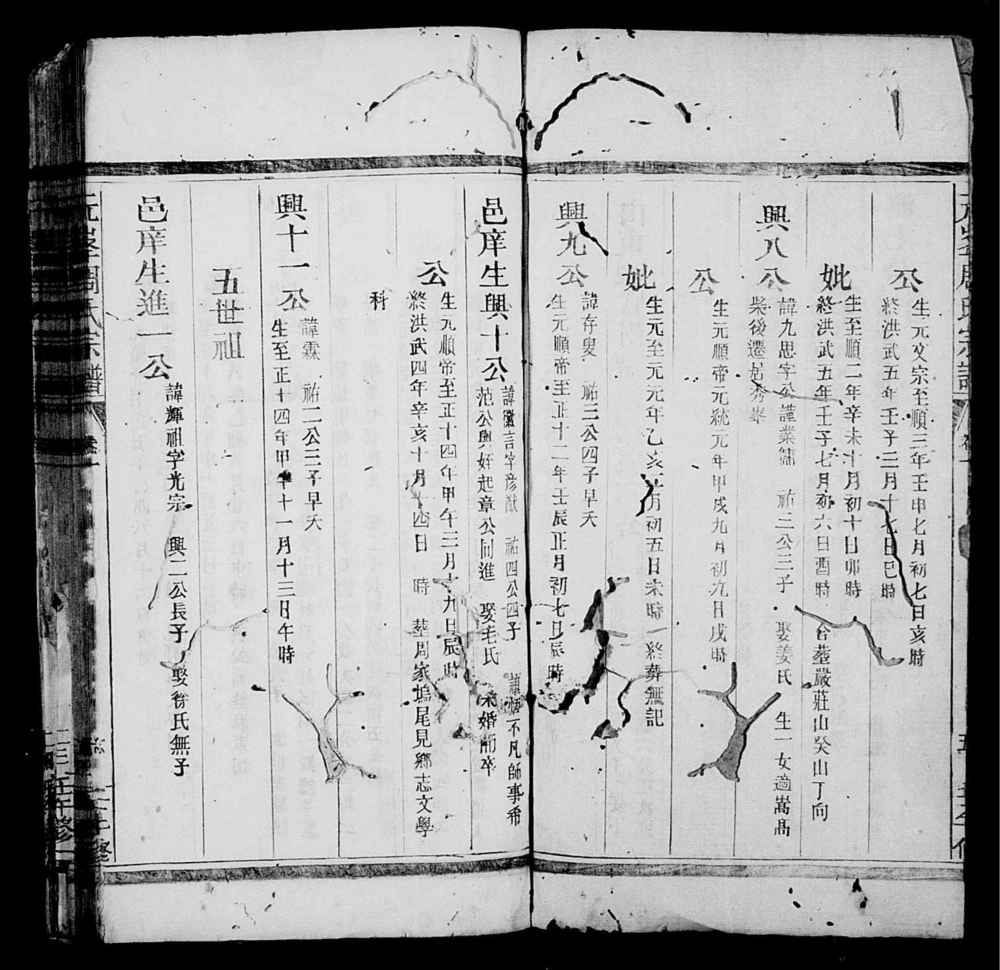 公 生元文宗至順三年壬申七月初七日亥時
終洪武五年壬子三月十七日巳時
妣 生至順二年辛未十月初十日卯時
終洪武五年壬子七月初六日酉時 合塟嚴莊山癸山丁向
興八公 諱九思字公謹業儒 祐二公三子 娶姜氏 生一女適嵩高
柴後遷居秀峯
公 生元順帝元統元年甲戌九月初九日戌時
妣 生元至元元年乙亥 月初五日未時 終葬無記
興九公 諱存叟 祐三公四子早夭
生元順帝至正十二年壬辰正月初七日辰時
邑庠生興十公 諱 言字彥猷 祐四公四子 不凡師事希
范公與姪起章公同進 娶毛氏 未婚而卒
公 生元順帝至正十四年甲午三月 九日辰時
終洪武四年辛亥十月十四日 時 塟周家塢尾見鄉志文學
科
興十一公 諱霖 祐二公三子早夭
生至正十四年甲午十一月十三日午時
五世祖
邑庠生進一公 諱輝祖字光宗 興二公長子 娶徐氏無子
周氏宗譜
卷一
壬午修